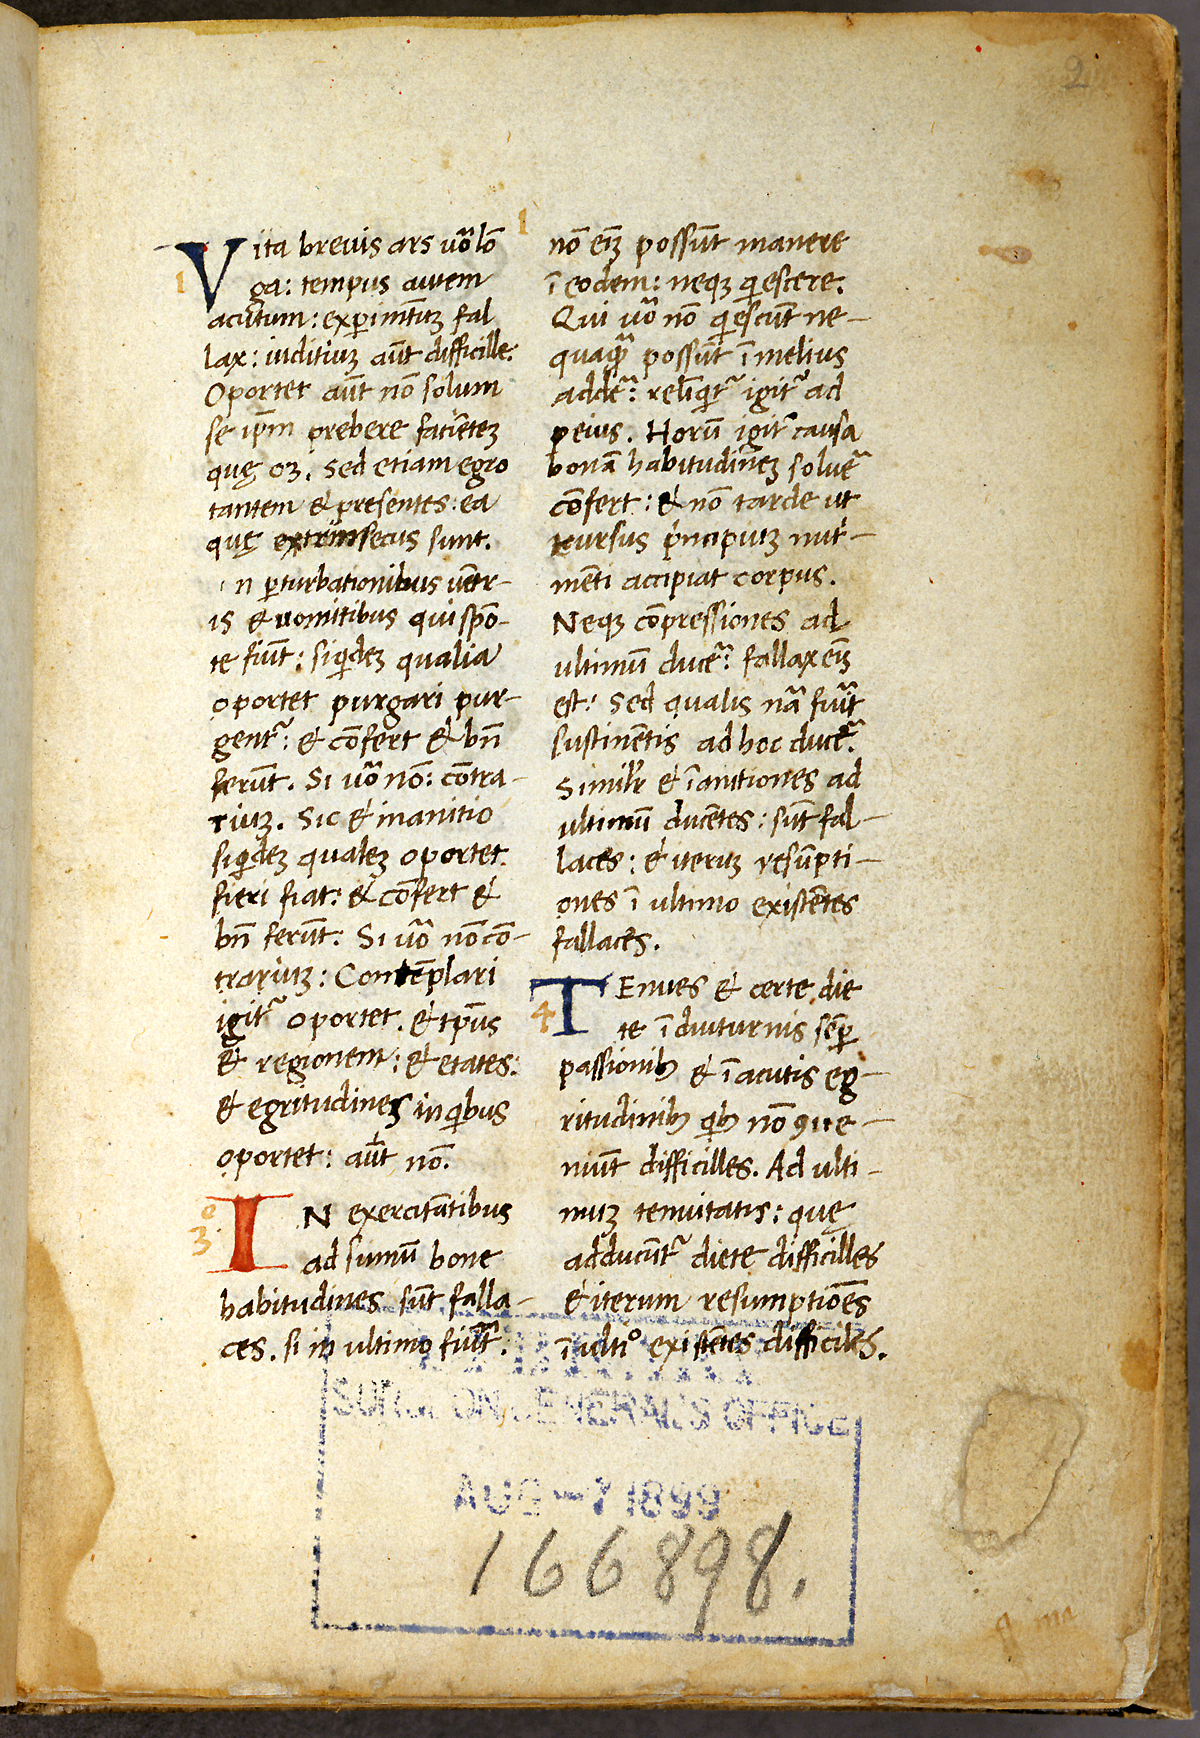 2
1
Vita breuis ars uõ lõ
1
ga: tempus autem
acutum: experimẽtuʒ fal
lax: iuditiuʒ aũt difficille:
Oportet aũt nõ solum
se ip̃m prebere faciẽteʒ
quę oʒ. Sed etiam egro
tantem & presentes: ea
quę extrinsecus sunt.
in perturbationibus uẽtr-
is & uomitibus qui spõ-
te fiũt: siqideʒ qualia
oportet purgari pur-
gentr: & cõfert & bñ
ferũt. Si uõ nõ: contra-
riuʒ. Sic & inanitio
siqideʒ qualeʒ oportet
fieri fiat: & cõfert &
bñ ferũt: Si uõ nõ cõ-
trariuʒ: Contẽplari
igitr oportet. & tp̃us
& regionem: & etates:
& egritudines in qibus
oportet: aũt nõ.
3
IN exercitãtibus
ad sumũ bone
habitudines sũt falla-
ces. si in ultimo fiũt.
nõ eiʒ possũt manere
ĩ eodem: neqʒ qiescere:
Qui uõ nõ qiescũt ne-
quaqã possũt ĩ melius
addẽr: relĩqitr igitr ad
peius. Horũ igitr causa
bonã habitudineʒ soluẽr
cõfert: & nõ tarde ut
rursus principiuʒ nut-
mẽti accipiat corpus.
Neqʒ cõpressiones ad
ultimũ ducẽr: fallax eiʒ
est: Sed qualis nã fiũt
sustinẽtis ad hoc ducẽr.
Similr & ĩanitiones ad
ultimũ ducẽtes: sũt fal-
laces: & iteruʒ resũpti-
ones ĩ ultimo existẽtes
fallaces.
4
TEnues & certe die
te ĩ diuturnis semp
passionibʒ & ĩ acutis eg-
ritudinibʒ qibʒ nõ ꝯue-
niũt difficilles. Ad ulti-
muʒ tenuitatis: quę
adducũtr diete difficilles
& iterum resumptiões
ĩ ultio existẽtes difficiles.
SURGEON GENERAL'S OFFICE
AUG -7 1899
166898.